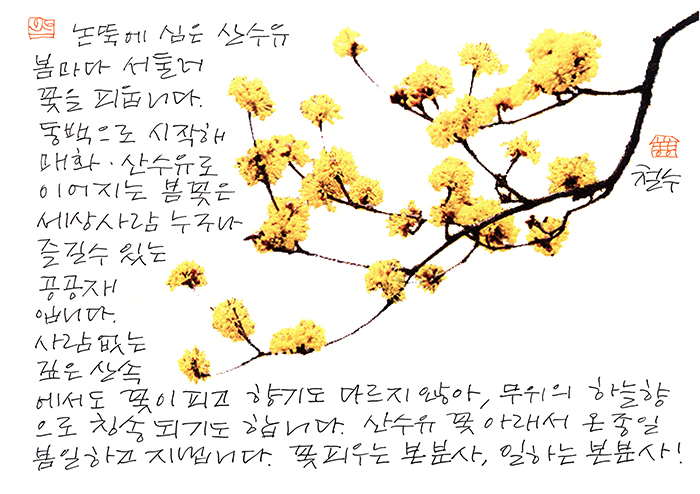 논뚝에 심은 산수유
봄마다 서둘러
꽃을 피웁니다.
동백으로 시작해
매화·산수유로
이어지는 봄꽃은
세상사람 누구나
즐길수 있는
공공재
입니다.
사람없는
깊은 산속
에서도 꽃이 피고 향기도 다르지 않아, 무위의 하늘향
으로 칭송되기도 합니다. 산수유 꽃 아래서 온종일
봄일하고 지냅니다. 꽃 피우는 본분사, 일하는 본분사!
철수